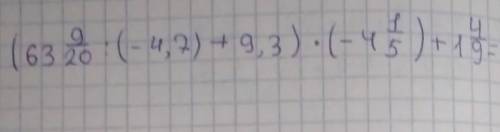 (63 9/20 : (-4,7) + 9,3) · (-4 1/5) + 1 4/9 =